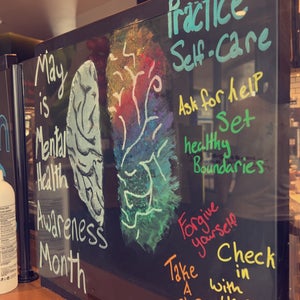 May
is
Mental
Health
Awareness
Month
Practice
Self-Care
Ask for help
Set
healthy
Boundaries
Forgive
yourself
Take
A
Check
in
with